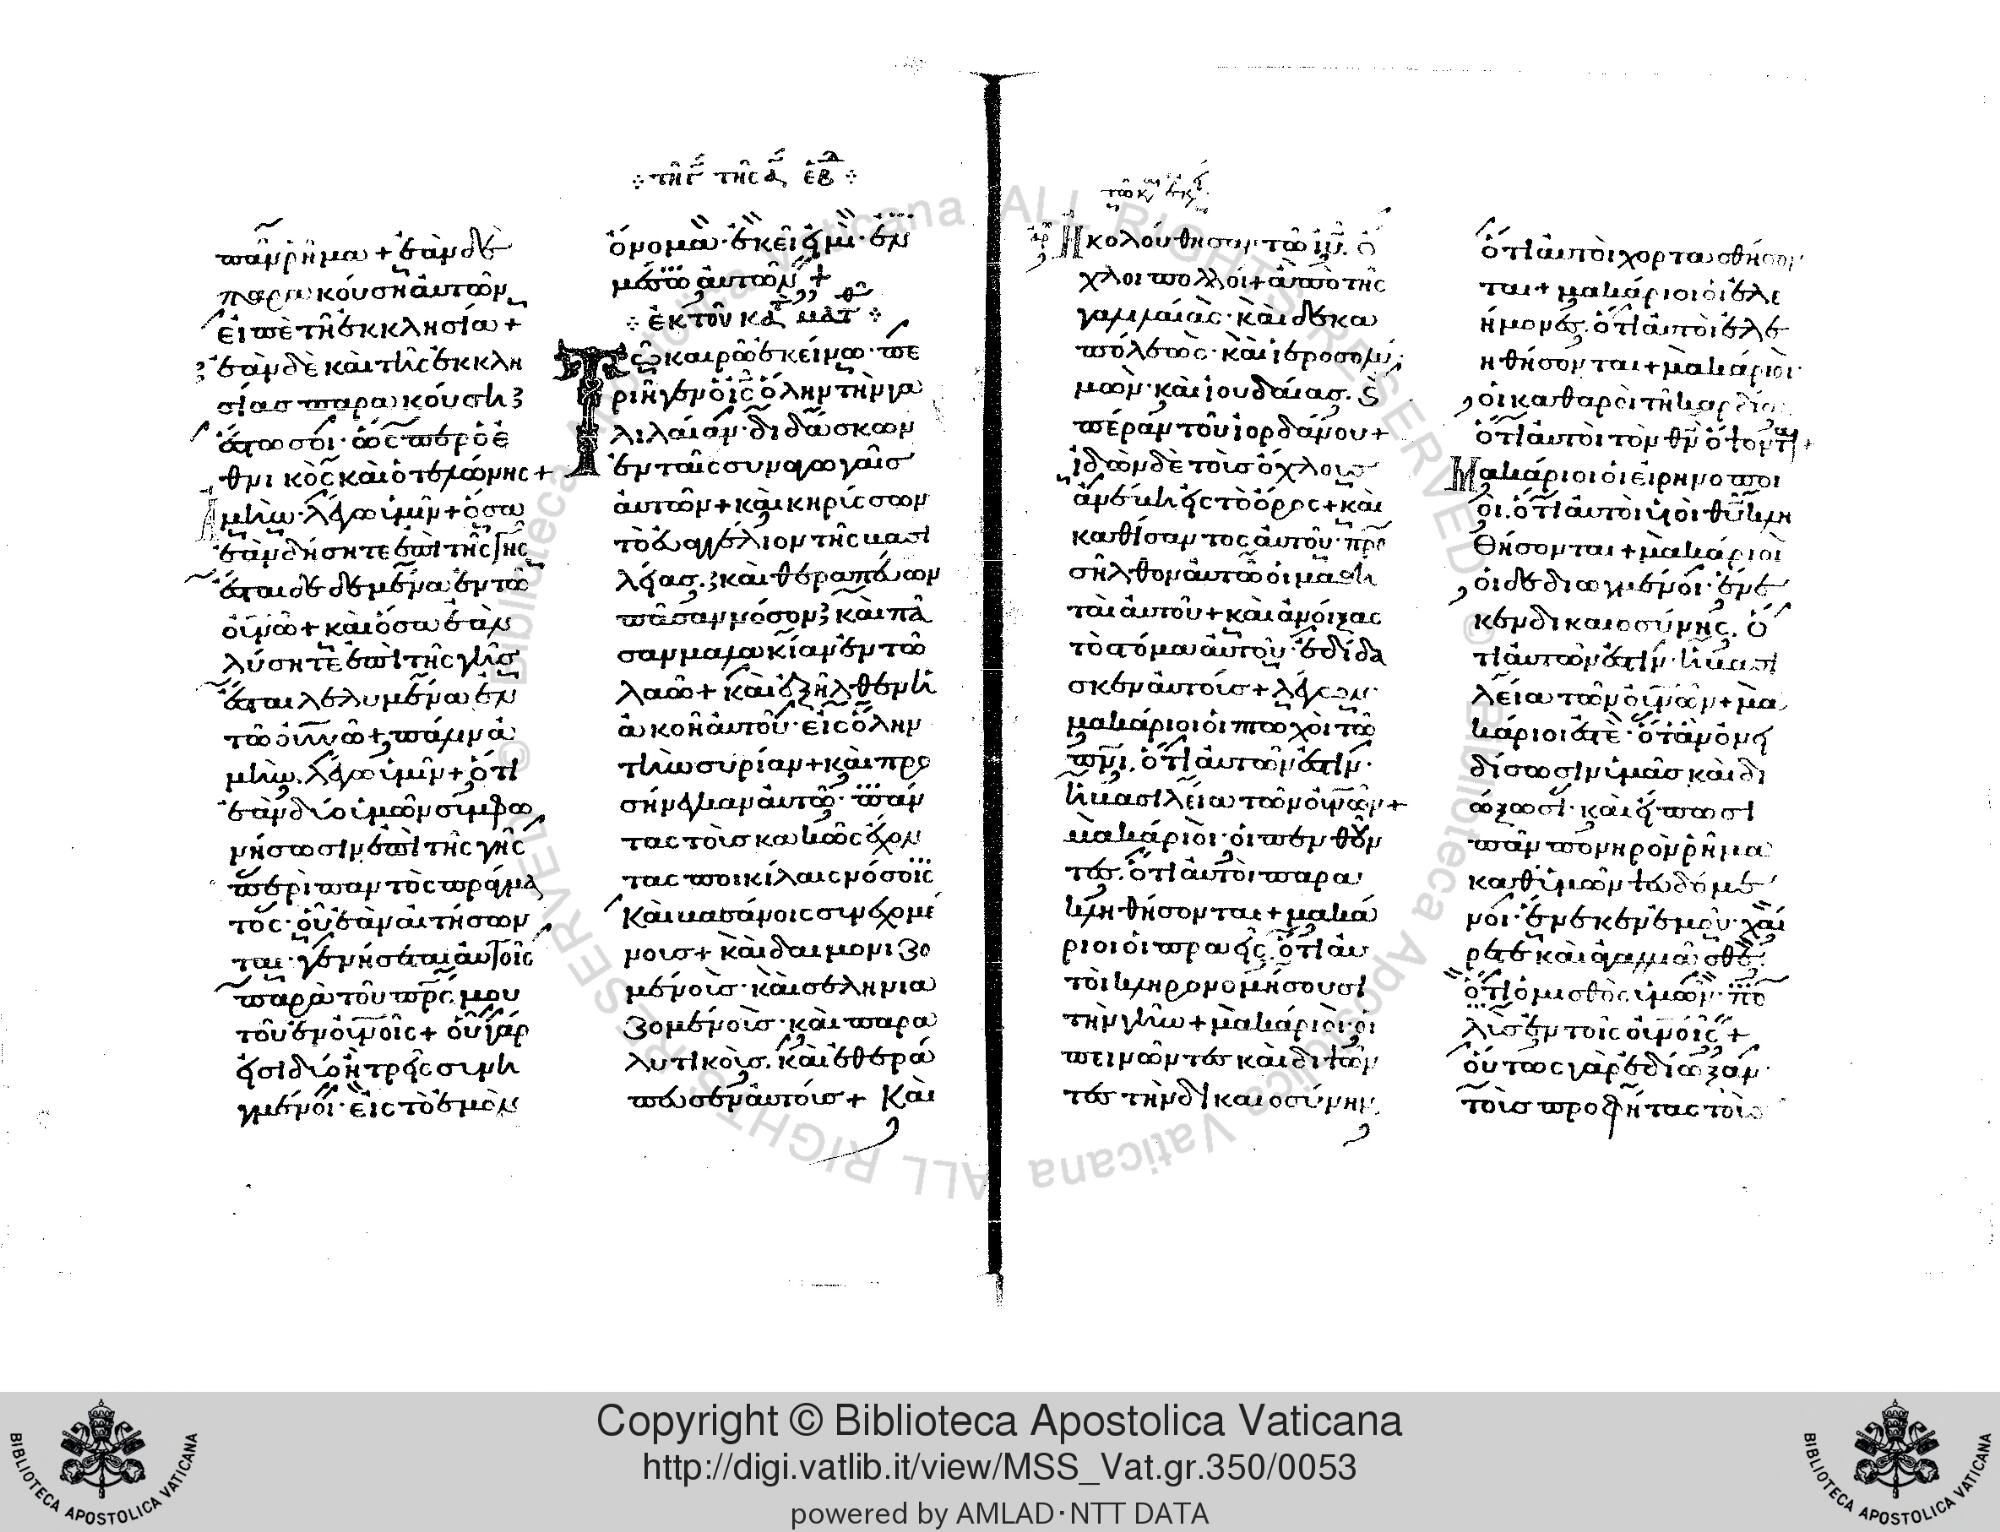 πᾶν ῥῆμα + ἐὰν δὲ
παρακούσῃ αὐτῶν,
εἰπὲ τῇ ἐκκλησίᾳ +
ἐὰν δὲ καὶ τῆς ἐκκλη
σίας παρακούσῃ
ἔστω σοι· ὥσπερ ὁ ἐ
θνικὸς καὶ ὁ τελώνης +
Ἀμὴν λέγω ὑμῖν + ὅσα
ἐὰν δήσητε ἐπὶ τῆς γῆς
ἔσται δεδεμένα ἐν τῶ
οὐνῶ + καὶ ὅσα ἐὰν
λύσητε ἐπὶ τῆς γῆς
ἔσται λελυμένα ἐν
τῶ οὐνῶ + πάλιν ἀ
μὴν λέγω ὑμῖν + ὅτι
ἐὰν δύο ὑμῶν συμφω
νήσωσιν ἐπὶ τῆς γῆς
περὶ παντὸς πράγμα
τος· οὗ ἐὰν αἰτήσων
ται· γενήσεται αὐτοῖς
παρὰ τοῦ πρς μου
τοῦ ἐν οὐνοῖς + οὗ γάρ
εἰσι δύο ἢ τρεῖς συνη
γμένοι· εἰς τὸ ἐμὸν
τῇ γ τῆς α ἑβ
ὄνομα· ἐκεῖ εἰμὶ· ἐν
μέσω αὐτῶν +
ἐκ τοῦ κατ ματθ
Τῶ καιρῶ ἐκείνω· πε
ριῆγεν ὁ ις ὅλην τὴν γα
λιλαίαν· διδάσκων
ἐν ταῖς συναγωγαῖς
αὐτῶν + καὶ κηρύσσων
τὸ εὐαγγέλιον τῆς βασι
λείας. καὶ θεραπεύων
πᾶσαν νόσον καὶ πᾶ
σαν μαλακίαν ἐν τῶ
λαῶ + καὶ ἐξῆλθεν ἡ
ἀκοὴ αὐτοῦ· εἰς ὅλην
τὴν συρίαν + καὶ προ
σήνεγκαν αὐτῶ· πάν
τας τοὺς κακῶς ἔχον
τας ποικίλαις νόσοις
Καὶ βασάνοις συνεχομέ
νους + καὶ δαιμονιζο
μένους· καὶ σεληνια
ζομένους· καὶ παρα
λυτικούς. καὶ ἐθερά
πευσεν αὐτούς + Καὶ
Ἠκολούθησαν τῶ ιυ. ὄ
χλοι πολλοὶ + ἀπὸ τῆς
γαλιλαίας· καὶ δεκα
πόλεως· καὶ ἱεροσολύ
μων· καὶ ἰουδαίας. καὶ
πέραν τοῦ ἰορδάνου +
ἰδὼν δὲ τοὺς ὄχλους
ἀνέβη εἰς τὸ ὄρος + καὶ
καθίσαντος αὐτοῦ· προ
σῆλθον αὐτῶ οἱ μαθη
ταὶ αὐτοῦ + καὶ ἀνοίξας
τὸ στόμα αὐτοῦ· ἐδίδα
σκεν αὐτοὺς + λέγων·
μακάριοι οἱ πτωχοὶ τῶ
πνι. ὅτι αὐτῶν ἐστιν·
ἡ βασιλεία τῶν οὐνῶν +
μακάριοι· οἱ πενθοῦν
τες. ὅτι αὐτοὶ παρα
κληθήσονται + μακά
ριοι οἱ πραεῖς. ὅτι αὐ
τοὶ κληρονομήσουσι
τὴν γῆν + μακάριοι· οἱ
πεινῶντες καὶ διψῶν
τες τὴν δικαιοσύνην,
ὅτι αὐτοὶ χορτασθήσον
ται + μακάριοι οἱ ἐλε
ήμονες. ὅτι αὐτοὶ ἐλε
ηθήσονται + μακάριοι·
οἱ καθαροὶ τῇ καρδίᾳ
ὅτι αὐτοὶ τὸν θν ὄψονται +
Μακάριοι οἱ εἰρηνοποι
οί. ὅτι αὐτοὶ υἱοὶ θυ κλη
θήσονται + μακάριοι
οἱ δεδιωγμένοι· ἕνε
κεν δικαιοσύνης. ὅ
τι αὐτῶν ἐστιν· ἡ βασι
λεία τῶν οὐνῶν + μα
κάριοί ἐστε· ὅταν ὀνει
δίσωσιν ὑμᾶς καὶ δι
ώξωσι· καὶ εἴπωσι
πᾶν πονηρὸν ῥῆμα
καθ' ὑμῶν ψευδόμε
νοι· ἕνεκεν ἐμοῦ· χαί
ρετε καὶ ἀγαλλιᾶσθε.
ὅτι ὁ μισθὸς ὑμῶν· πο
λὺς ἐν τοῖς οὐνοῖς +
οὕτως γὰρ ἐδίωξαν·
τοὺς προφήτας τοὺς
Copyright © Biblioteca Apostolica Vaticana
http://digi.vatlib.it/view/MSS_Vat.gr.350/0053
powered by AMLAD·NTT DATA
BIBLIOTECA APOSTOLICA VATICANA
BIBLIOTECA APOSTOLICA VATICANA